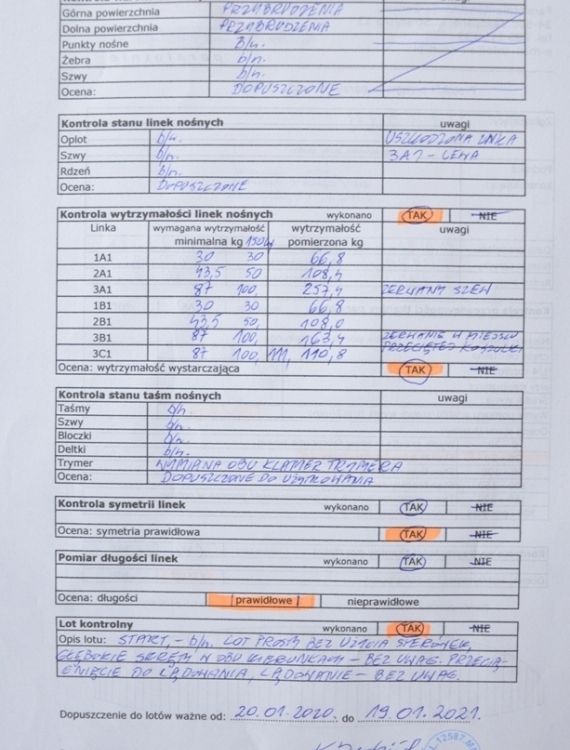 uwagi
Górna powierzchnia PRZYBRUDZENIA
Dolna powierzchnia PRZYBRUDZENIA
Punkty nośne B/n.
Żebra b/n.
Szwy b/n.
Ocena: DOPUSZCZONE
Kontrola stanu linek nośnych uwagi
Oplot b/u. USZKODZONA LINKA
Szwy b/n. 3A1 - LEWA
Rdzeń b/n.
Ocena: DOPUSZCZONE
Kontrola wytrzymałości linek nośnych wykonano TAK NIE
Linka wymagana wytrzymałość wytrzymałość uwagi
minimalna kg pomierzona kg
1A1 30 30 66,8
2A1 43,5 50 108,4
3A1 87 100, 257,4 ZERWANY SZEW
1B1 30 30 66,8
2B1 43,5 50, 108,0
3B1 87 100, 163,4 ZERWANIE W MIEJSCU
PRZECIĘTEJ KOSZULKI
3C1 87 100, 111, 110,8
Ocena: wytrzymałość wystarczająca TAK NIE
Kontrola stanu taśm nośnych uwagi
Taśmy b/n.
Szwy b/n.
Bloczki b/n.
Deltki b/n.
Trymer WYMIANA OBU KLAMER TRYMERA
Ocena: DOPUSZCZONE DO UŻYTKOWANIA
Kontrola symetrii linek wykonano TAK NIE
Ocena: symetria prawidłowa TAK NIE
Pomiar długości linek wykonano TAK NIE
Ocena: długości prawidłowe nieprawidłowe
Lot kontrolny wykonano TAK NIE
Opis lotu: START - b/n. LOT PROSTY BEZ UŻYCIA STERÓWEK,
GŁĘBOKIE SKRĘTY W OBU KIERUNKACH - BEZ UWAG. PRZECIĄ-
GNIĘCIE DO LĄDOWANIA, LĄDOWANIE - BEZ UWAG.
Dopuszczenie do lotów ważne od: 20.01.2020. do 19.01.2021.